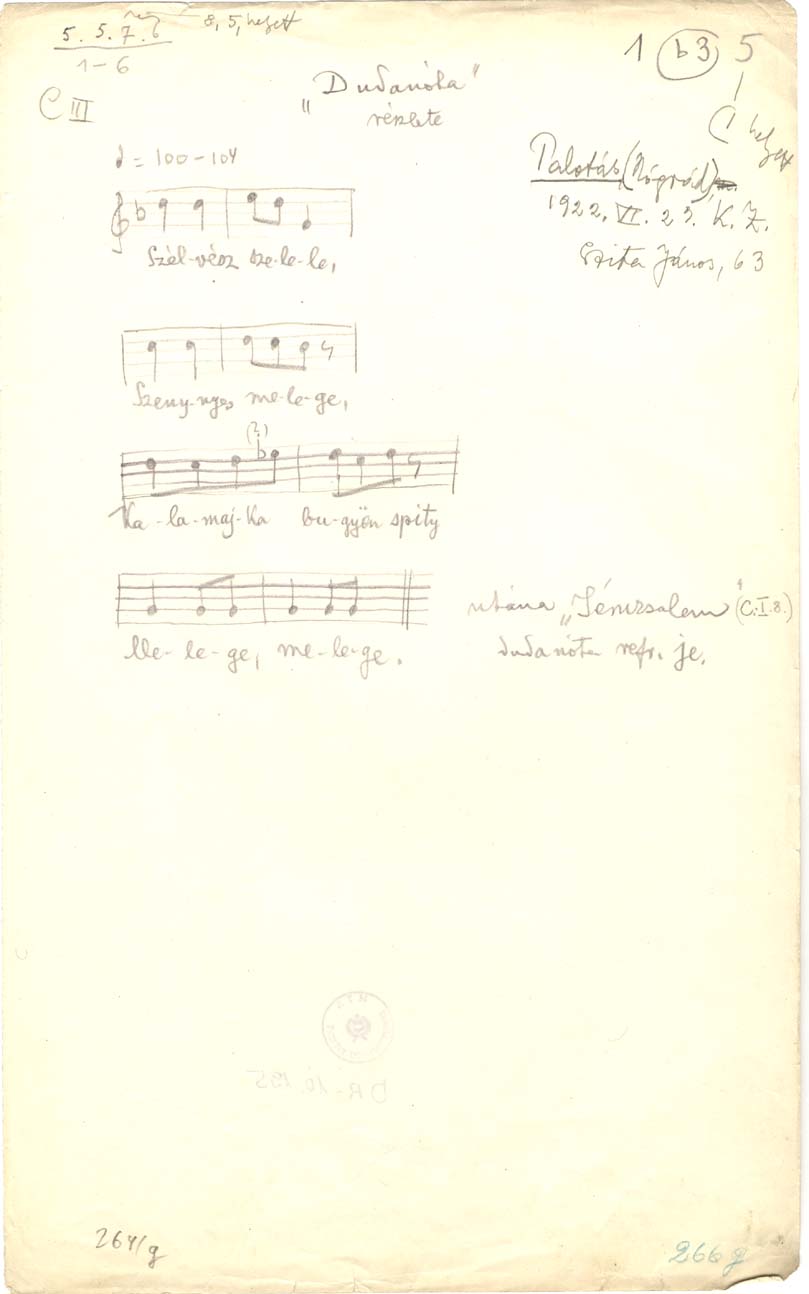 5. 5. 7. 6 8, 5, helyett
1-6
C III
1 b3 5
( 1 helyett
"Dudanóta"
részlete
= 100-104
Palotás, (Nógrád)
1922. VI. 23. K. Z.
Szita János, 63
Szél-vész sze-le-le,
Szeny-nyes me-le-ge,
(?)
Ka-la-maj-ka bu-gyön spity
Me-le-ge, me-le-ge.
utána "Jéruzsalem" (C.I.8.)
dudanóta refr. je.
DR-10.155
264/g
266 g